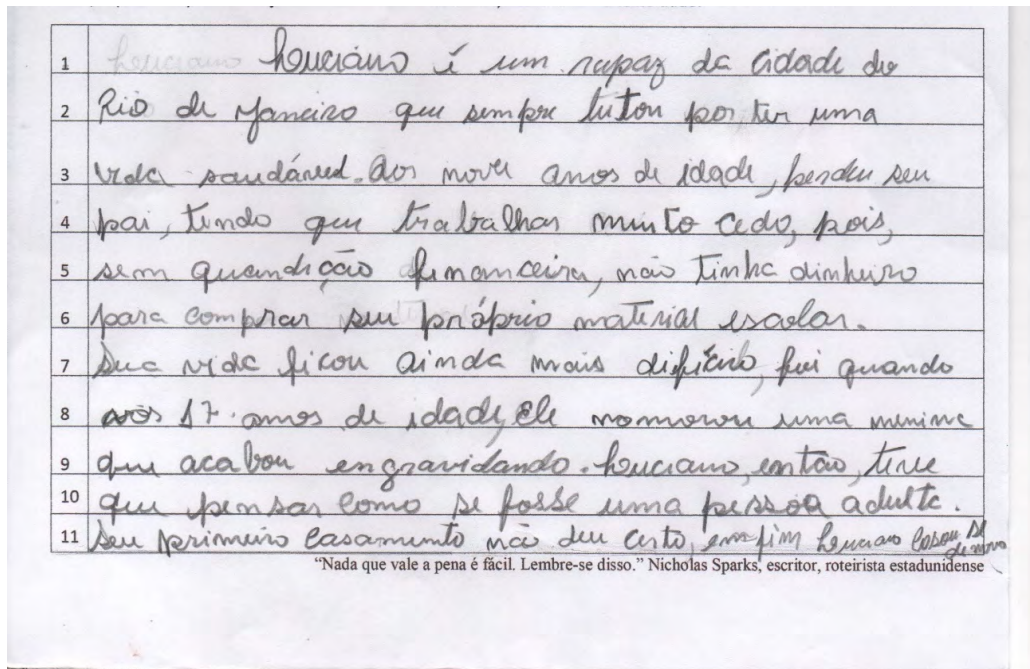 1 Luciano Luciano é um rapaz da cidade do
2 Rio de Janeiro que sempre lutou por ter uma
3 vida saudável. Aos nove anos de idade, perdeu seu
4 pai, tendo que trabalhar muito cedo, pois,
5 sem quandição financeira, não tinha dinheiro
6 para comprar seu próprio material escolar.
7 Sua vida ficou ainda mais difício, foi quando
8 aos 17 anos de idade, ele nomorou uma menina
9 que acabou engravidando. Luciano, então, teve
10 que pensar como se fosse uma pessoa adulta.
11 Seu primeiro casamento não deu certo, em fim Luciano casou se de novo
“Nada que vale a pena é fácil. Lembre-se disso.” Nicholas Sparks, escritor, roteirista estadunidense